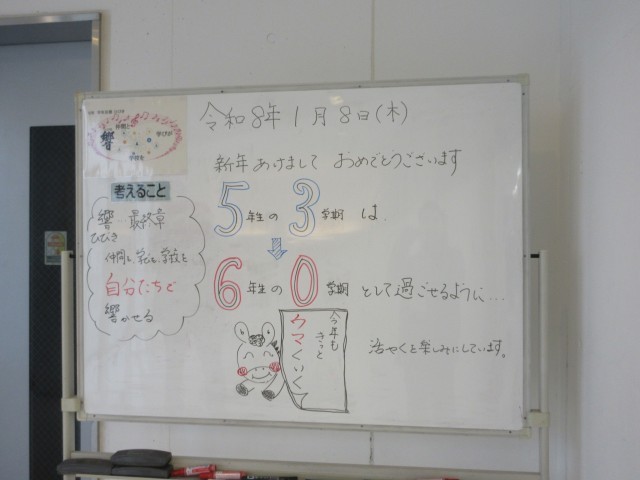 仲間と
学びが
響
学校を
令和8年1月8日(木)
新年あけまして おめでとうございます
5年生の3学期 は、
6年生の0学期 として過ごせるように…
活やくを楽しみにしています。
考えること
響 最終章
ひびき
仲間と、学びを、学校を
自分たちで
響かせる
今年も
きっと
ウマくいく